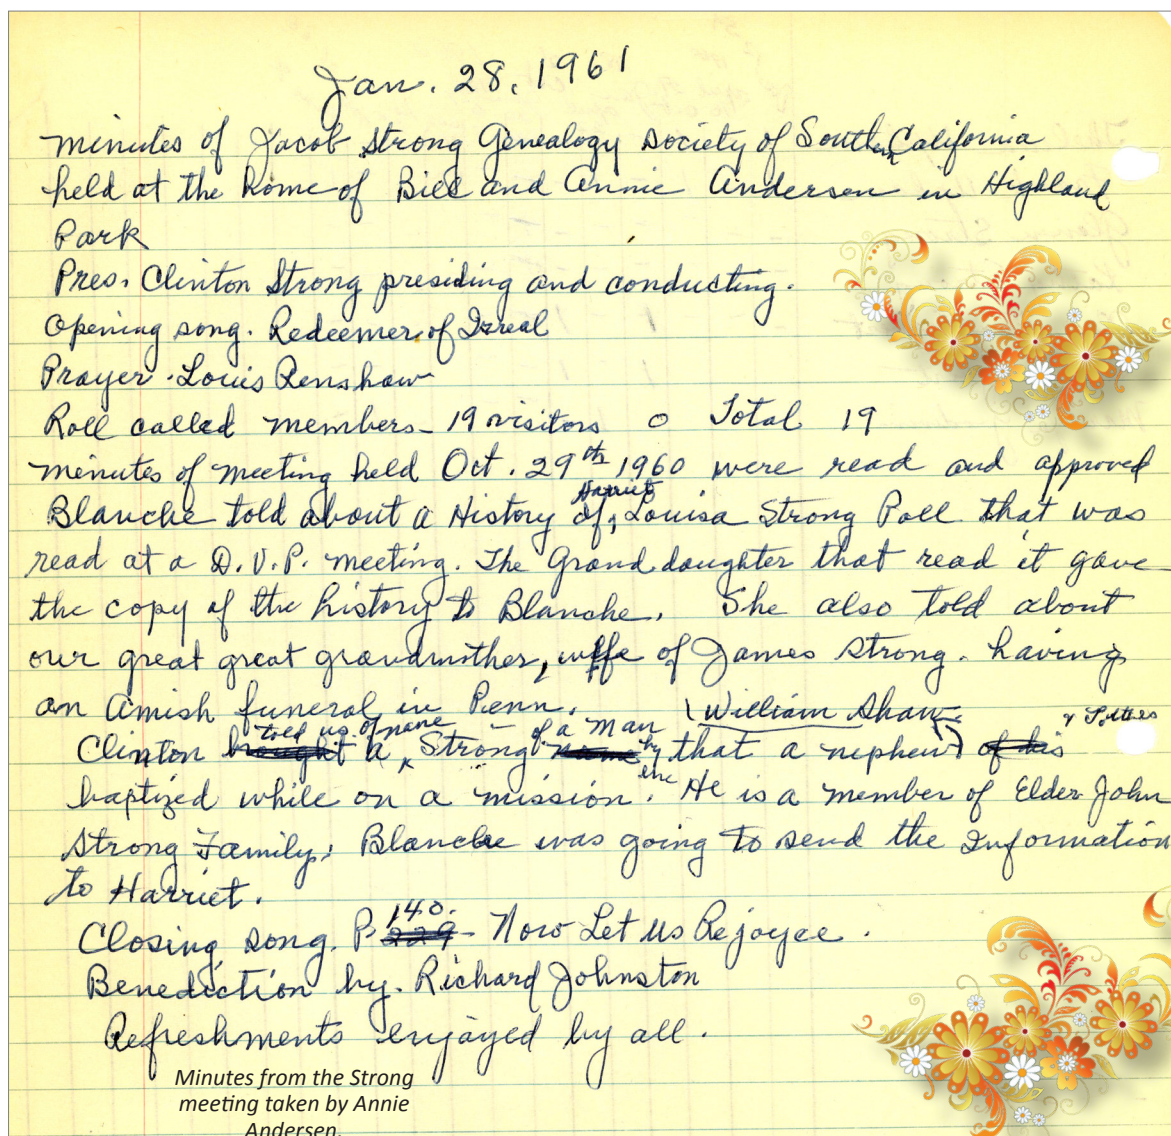 Jan. 28, 1961
minutes of Jacob Strong Genealogy Society of Southern California
held at the home of Bill and Annie Andersen in Highland
Park
Pres. Clinton Strong presiding and conducting.
Opening song. Redeemer of Isreal
Prayer - Louis Renshaw
Roll called members - 19 visitors 0 Total 19
minutes of meeting held Oct. 29th 1960 were read and approved
Blanche told about a History of Harriet Louisa Strong Poll that was
read at a D.U.P. meeting. The Grand daughter that read it gave
the copy of the history to Blanche. She also told about
our great great grandmother, wife of James Strong. having
an Amish funeral in Penn.
Clinton told us of a Strong of a man by that a nephew (William Shaw)
baptized while on a mission. He is a member of Elder John
Strong Family. Blanche was going to send the Information
to Harriet.
Closing song. P. 140. Now Let us Rejoyce.
Benediction by. Richard Johnston
Refreshments enjoyed by all.
Minutes from the Strong
meeting taken by Annie
Andersen.